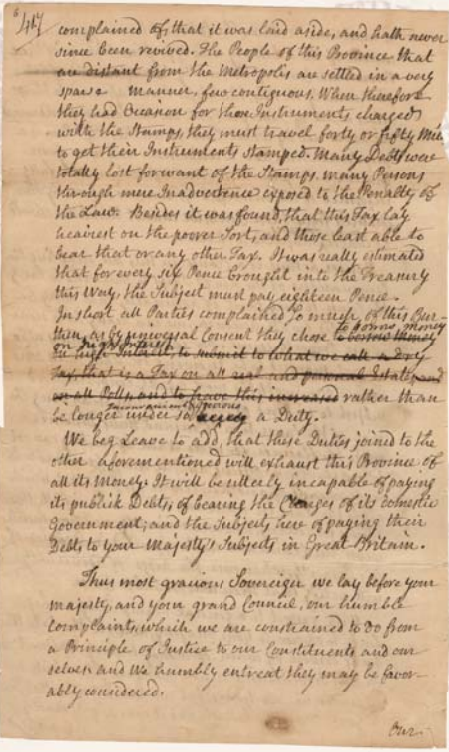 6/417
complained of, that it was laid aside, and hath never
since been revived. The People of this Province that
are distant from the Metropolis are settled in a very
sparse manner, few contiguous. When therefore
they had Occasion for those Instruments charged
with the Stamps, they must travel forty or fifty Miles
to get their Instruments stamped. many Debts were
totally lost for want of the Stamps. many Persons
through mere Inadvertence exposed to the Penalty of
the Law. Besides it was found, that this Tax lay
heaviest on the poorer Sort, and those least able to
bear that or any other Tax. It was really estimated
that for every six Pence brought into the Treasury
this Way, the Subject must pay eighteen Pence.
In short all Parties complained so much of this Bur-
then, as by universal Consent they chose to borrow money
to borrow money
on high Interest
on high Interest, to submit to what we call a dry
Tax, that is a Tax on all real and personal Estates and
on all Polls, and to have this increased rather than
be longer under so a Duty.
We beg Leave to add, that these Duties joined to the
other aforementioned will exhaust this Province of
all its Money. It will be utterly incapable of paying
its publick Debts, of bearing the Charges of its domestic
Government; and the Subjects here of paying their
Debts to your Majesty's Subjects in Great Britain.
Thus most gracious Sovereign we lay before your
majesty, and your grand Council, our humble
complaints, which we are constrained to do from
a Principle of Justice to our Constituents and our
selves and We humbly entreat they may be favor-
ably considered.
Our